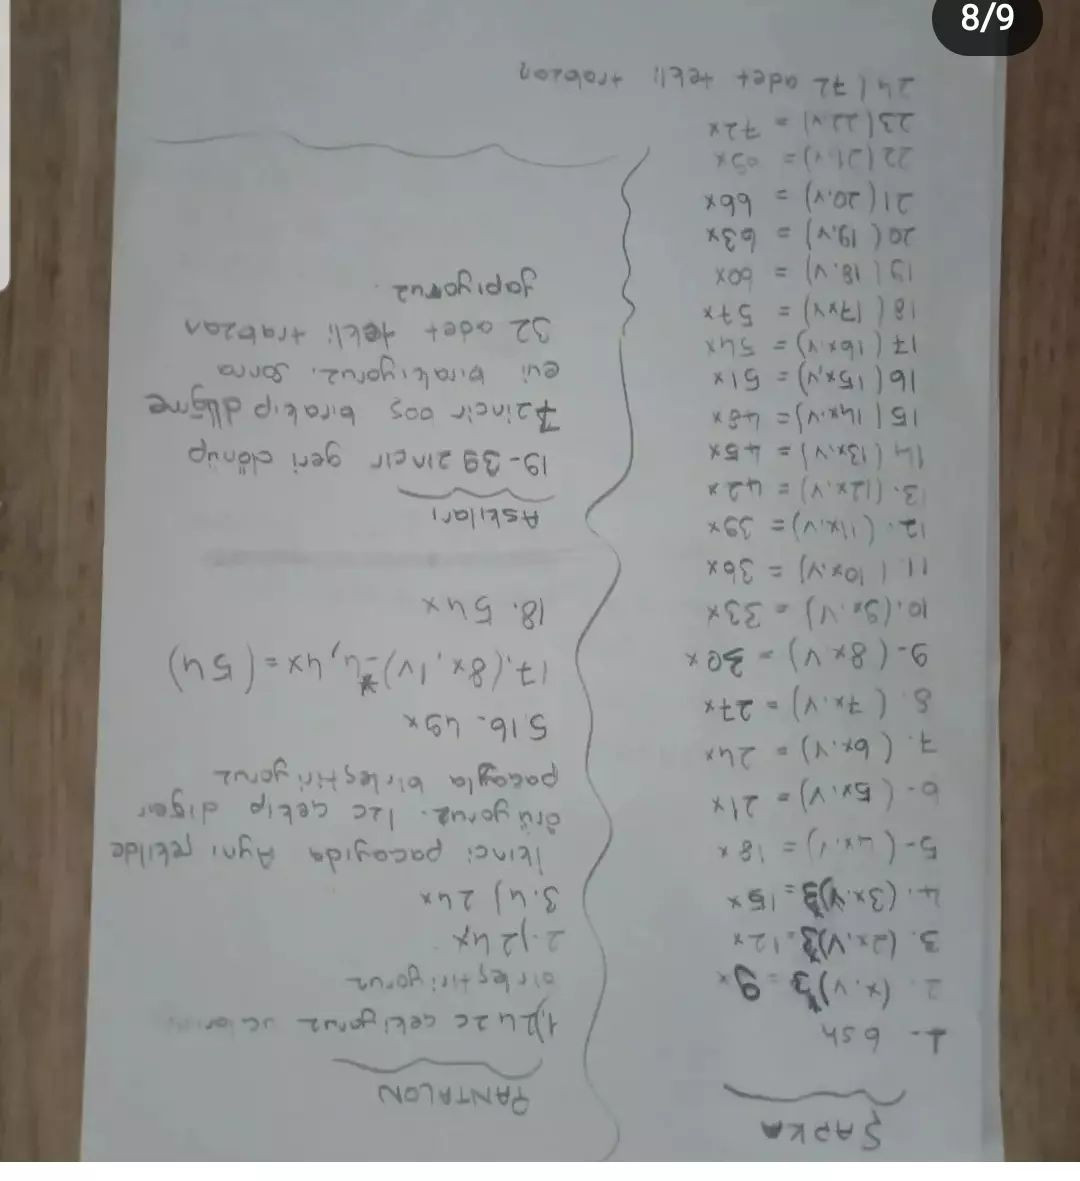 8/9
ŞAPKA
1- 6 sh
2. (x.v)3 = 9x
3. (2x.v)3=12x
4. (3x.v)3=15x
5-(4x.v) = 18x
6-(5x.v)= 21x
7. (6x.v) = 24x
8. (7x.v) = 27x
9-(8x v) = 30x
10.(9x.v) = 33x
11. (10x.v) = 36x
12. (11x.v) = 39x
13. (12x.v) = 42x
14 (13x.v) = 45x
15 (14x.v)= 48x
16 (15x.v)= 51x
17 (16x.v)= 54x
18 (17x.v) = 57x
19 (18.v) = 60x
20 (19.v) = 63x
21 (20.v) = 66x
22 (21.v) = 69x
23 (22.v) = 72x
24 (72 adet tekli trabzan
PANTALON
1.)24zc çekiyoruz
birleştiriyoruz
2.)24x
3.4) 24x
İkinci paçayıda Aynı şekilde
örüyoruz. 1zc çekip diğer
paçayla birleştiriyoruz
5.16. 49x
17.(8x,1v)*4,4x=(54)
18. 54x
Askıları
19-39 zincir geri dönüp
7zincir boş bırakıp düğme
evi bırakıyoruz. sonra
32 adet tekli trabzan
yapıyoruz.